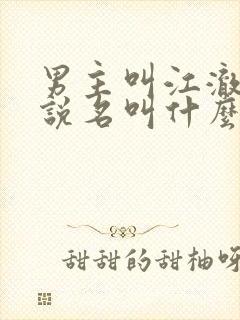 男主叫江澈
説名叫什麼
甜甜的甜柚呀